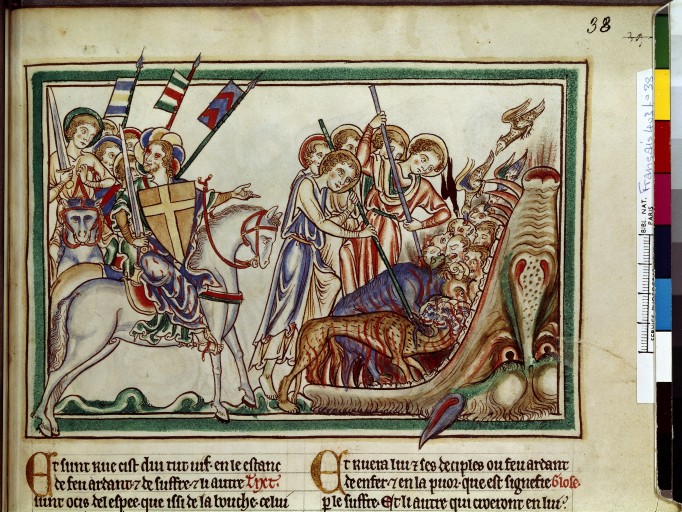 38
Et sunt rue cist dui tut uif. en le estanc
de feu ardant ⁊ de suffre. ⁊ li autre Tixt.
sunt ocis del espee que issi de la buche celui
Et ruera lui ⁊ ses deciples ou feu ardant
de enfer ⁊ en la puor que est signefie Glose
p le suffre. Et li autre qui croeront en lui.
BIBL. NAT.
PARIS
Français 403 fo 38